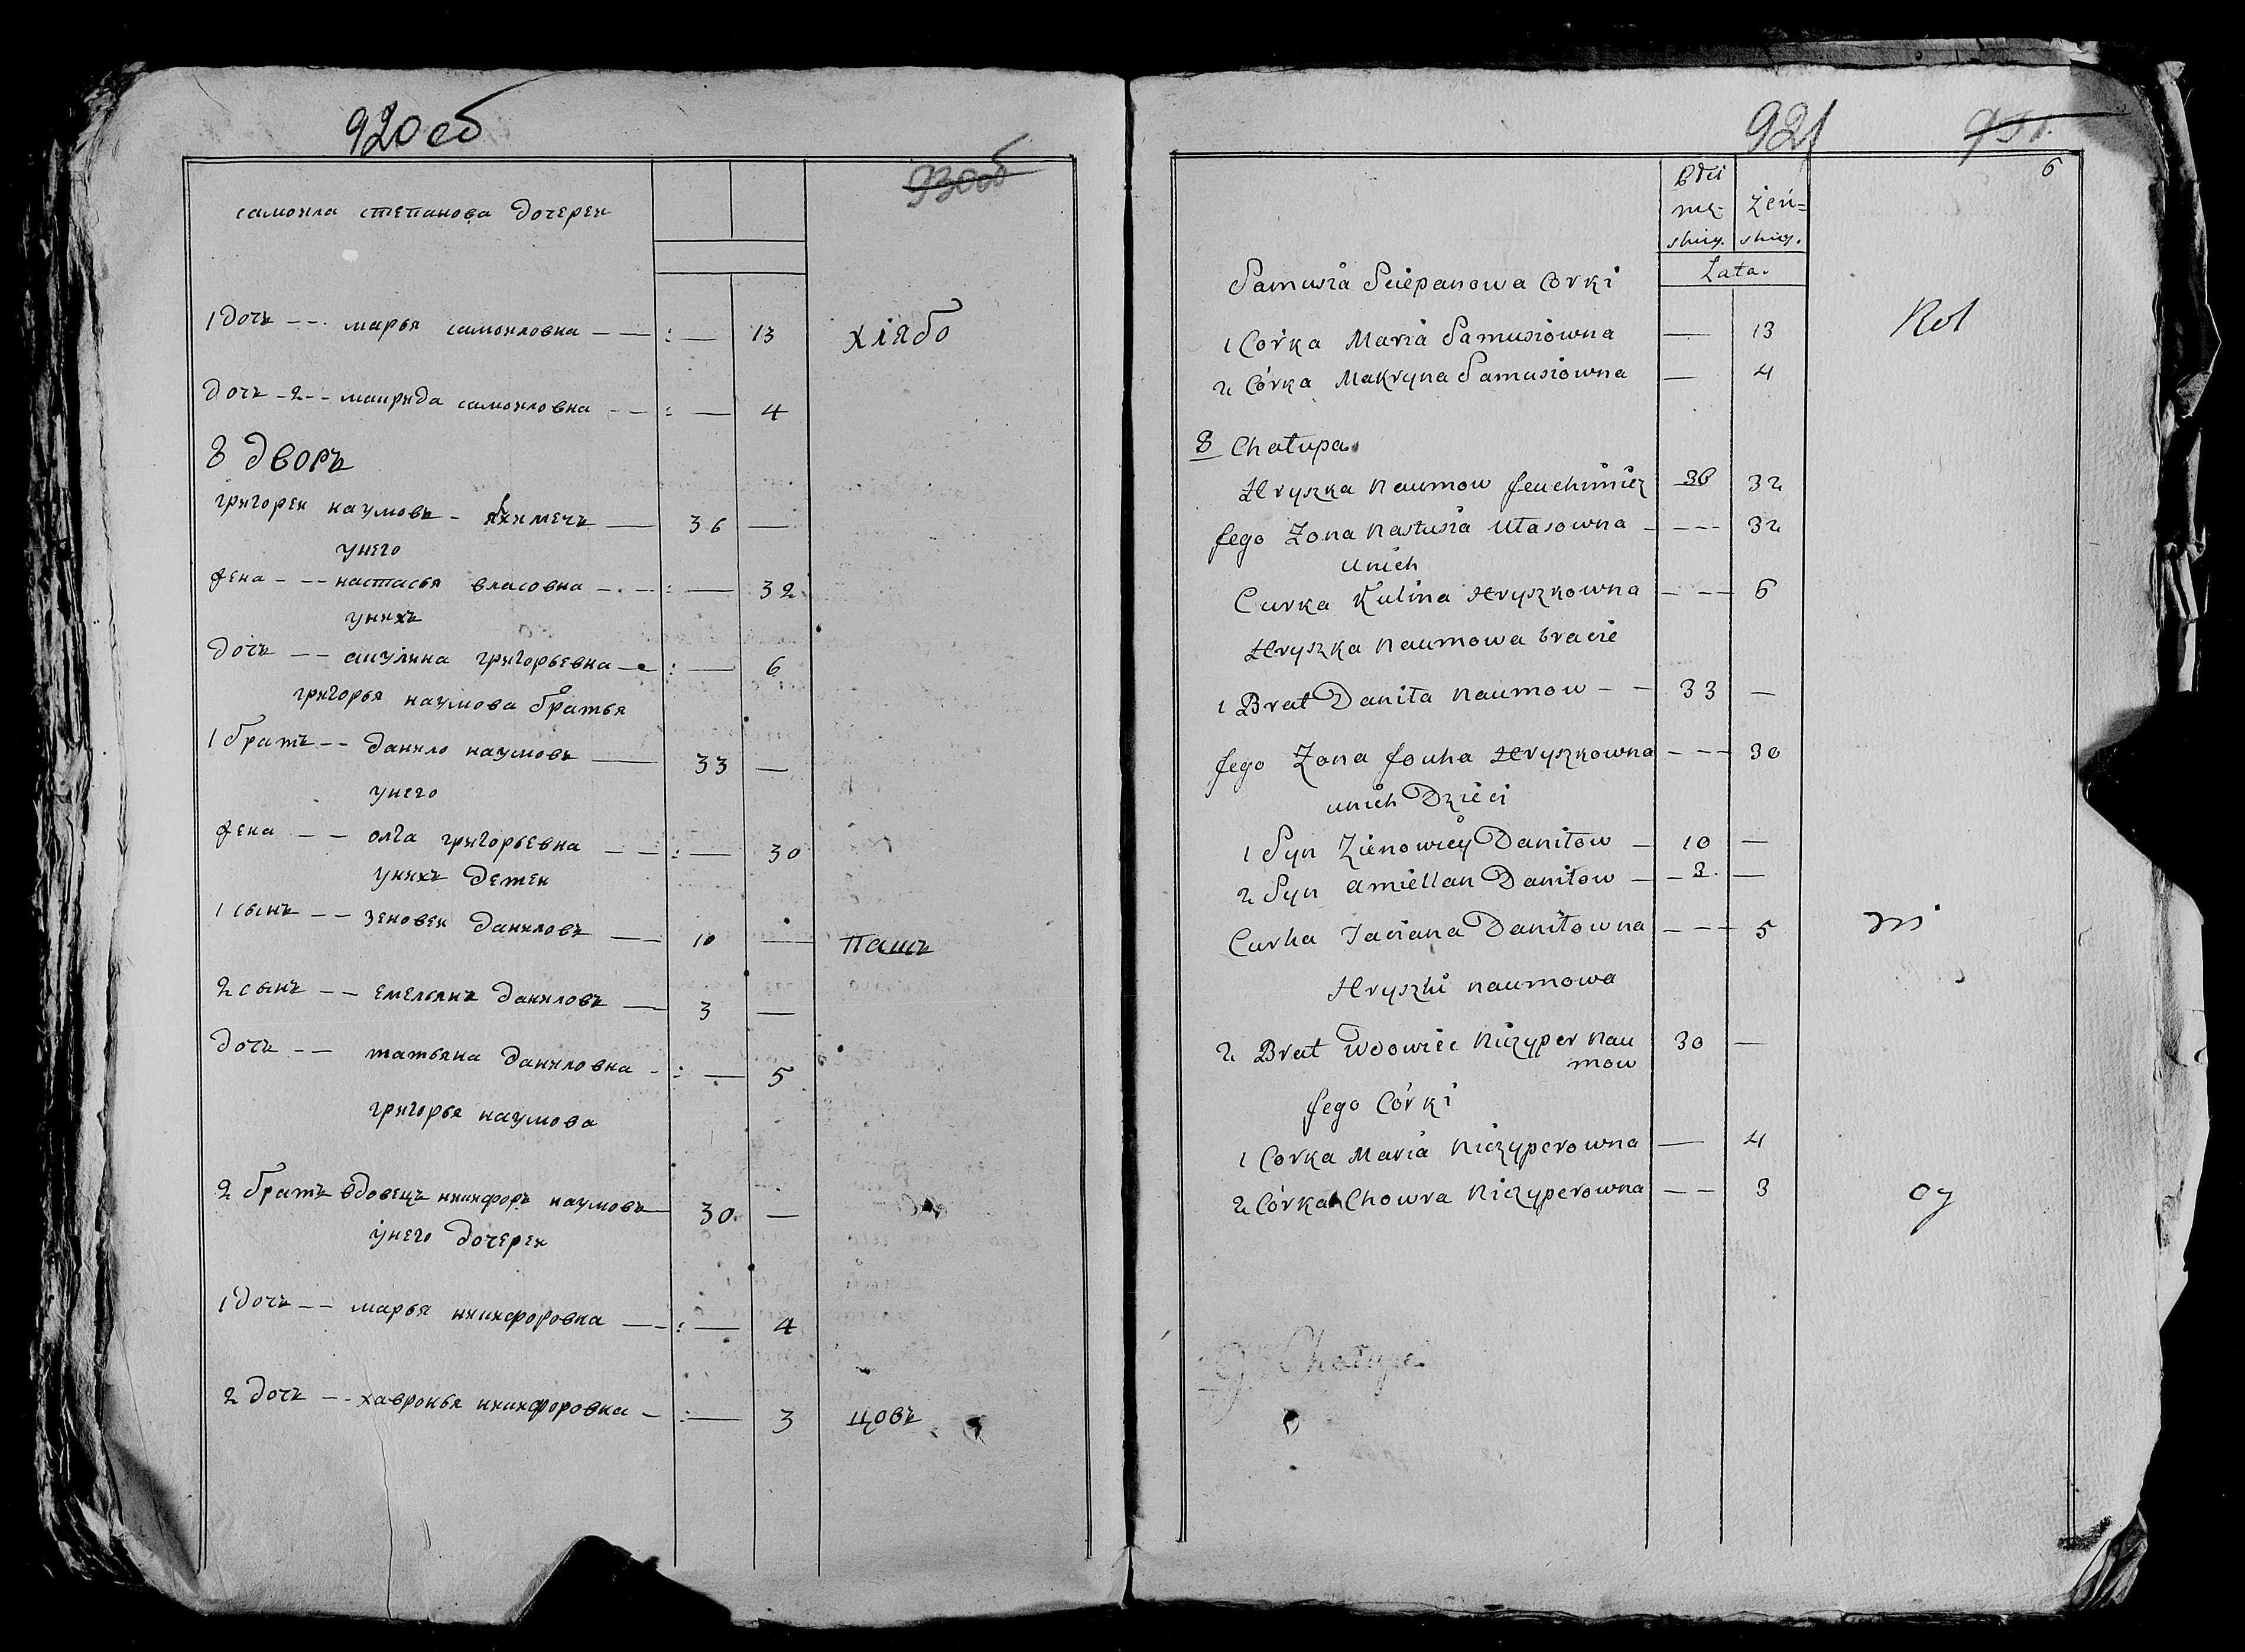 920об
930об
самоила степанова дочереи
1 дочь -- марья самоиловна — : — 13 хлѣбо
дочь -2-- макрида самоиловна -- : — 4
8 дворъ
григореи наумовъ - — 36 —
унего
жена --- настасья власовна -.- : — 32
унихъ
дочь -- акулина григорьевна — : — 6
григорья наумова братья
1 братъ -- данило наумовъ — 33 —
унего
жена -- олга григорьевна -- : — 30
унихъ детеи
1 сынъ -- зеновеи даниловъ — 10 — пашъ
2 сынъ -- емельянъ даниловъ — 3 —
дочь -- татьяна даниловна - : — 5
григорья наумова
2 братъ вдовецъ никифоръ наумовъ — 30 —
унего дочереи
1 дочь -- марья никифоровна — : — 4
2 дочь -- хавронья никифоровна - : — 3 цовъ
921
931.
6
płci
mę- żeń=
skiey. skiey.
Lata.
Samusia Sciepanowa Corki
1 Córka Maria Samusiowna — 13 Rol
2 Córka Makryna Samusiowna — 4
8 Chałupa
Hryszka Naumow Jeuchimicz 36 32
Jego Zona Nastusia Ułasowna - --- 32
unich
Curka Kulina Hryszkowna - -- 6
Hryszka Naumowa bracie
1 Brat Daniła Naumow - - 33 —
Jego Zona Jouha Hryszkowna - -- 30
unich Dzieci
1 Syn Zienowiey Daniłow — 10 —
2 Syn Amiellan Daniłow — - 3. —
Curka Taciana Daniłowna - -- 5 ni
Hryszki Naumowa
2 Brat Wdowiec Niczyper Nau 30 —
mow
Jego Córki
1 Corka Maria Niczyperowna — 4
2 Córka Chowra Niczyperowna - - 3 cy
9 Chałupa